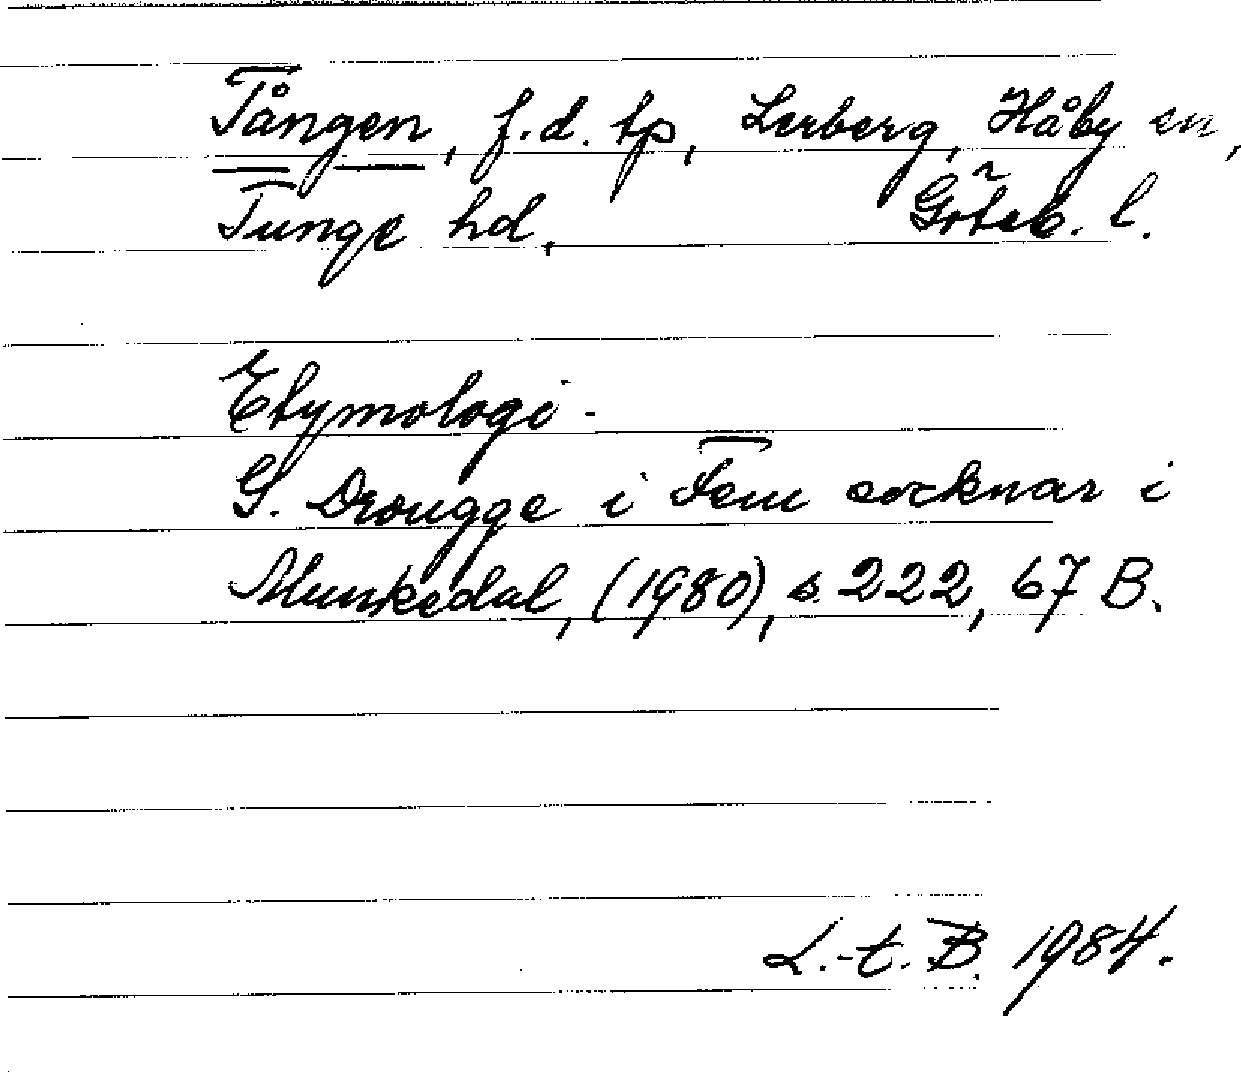 Tången, f.d. tp, Lerberg, Håby sn,
Tunge hd, Göteb. l.
Etymologi.
G. Drougge i Fem socknar i
Munkedal, (1980), s. 222, 67 B.
L.-t. B. 1984.